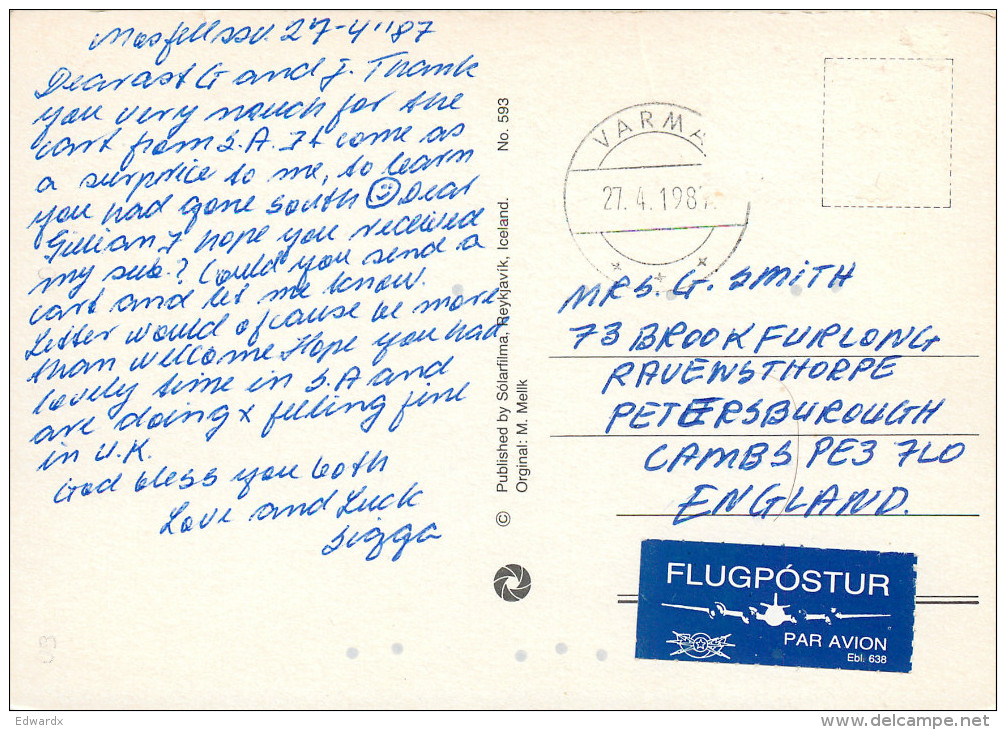 Mosfellssv. 27-4''87
Dearast G and J. Thank
you very much for the
cart from S.A. It come as
a surprice to me, to learn
you had gone south Dear
Gillian I hope you received
my sub.? Could you send a
cart and let me know.
Letter would ofcause be more
than wellcome. Hope you had
lovely time in S.A and
are doing x felling fine
in U.K.
God bless you both
Love and Luck
Sigga
© Published by Sólarfilma, Reykjavík, Iceland. No. 593
Orginal: M. Mellk
VARMÁ
27. 4. 1987
MRS. G. SMITH
73 BROOK FURLONG
RAVENSTHORPE
PETERSBUROUGH
CAMBS PE3 7LO
ENGLAND.
FLUGPÓSTUR
PAR AVION
Ebl. 638
Edwardx
www.delcampe.net